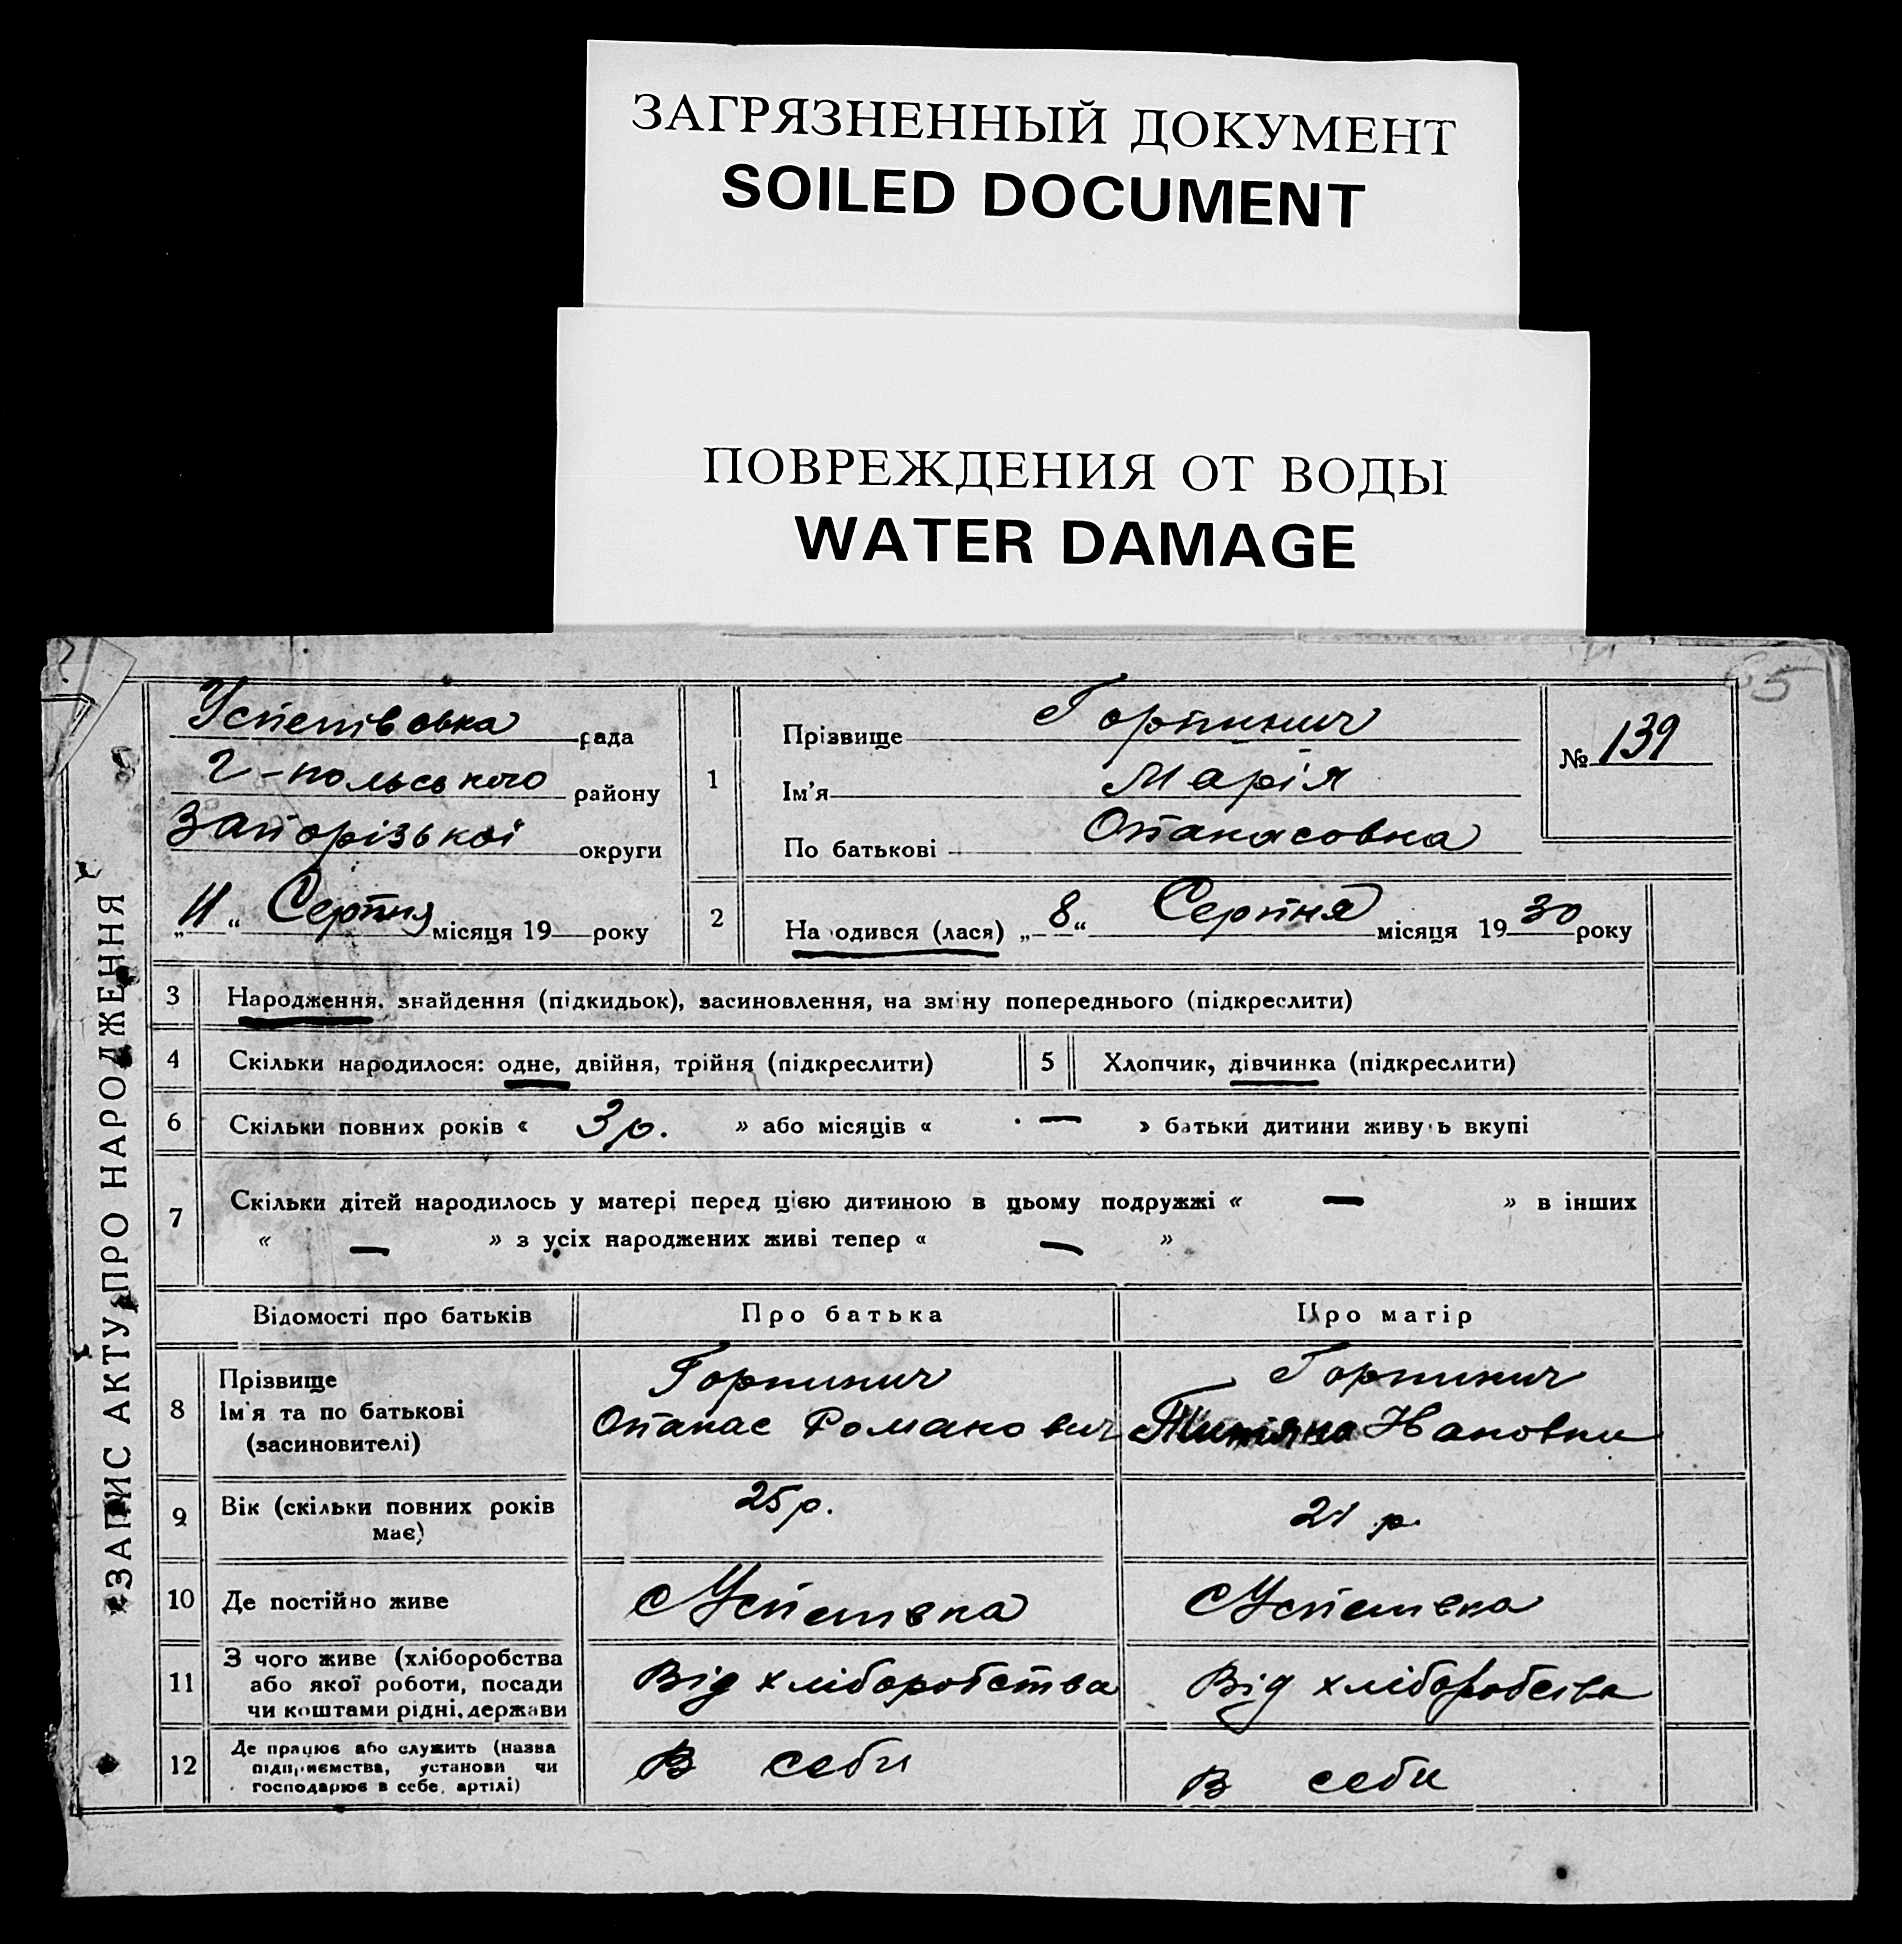 ЗАГРЯЗНЕННЫЙ ДОКУМЕНТ
SOILED DOCUMENT
ПОВРЕЖДЕНИЯ ОТ ВОДЫ
WATER DAMAGE
65
ЗАПИС АКТУ ПРО НАРОДЖЕННЯ
рада
Г-польського району
Запорізької округи
„11“ Серпня місяця 19 року
1
Прізвище Горпинич
Ім'я Марія
По батькові Опанасовна
№ 139
2
Народився (лася) „8“ Серпня місяця 1930 року
3 Народження, знайдення (підкидьок), засиновлення, на зміну попереднього (підкреслити)
4 Скільки народилося: одне, двійня, трійня (підкреслити)
5 Хлопчик, дівчинка (підкреслити)
6 Скільки повних років « 3 р. » або місяців « — » батьки дитини живуть вкупі
7 Скільки дітей народилось у матері перед цією дитиною в цьому подружжі « — » в інших
« — » з усіх народжених живі тепер « — »
Відомості про батьків Про батька Про матір
8 Прізвище
Ім'я та по батькові
(засиновителі)
Горпинич
Опанас Романович
Горпинич
9 Вік (скільки повних років
має)
25 р.
21 р.
10 Де постійно живе
11 З чого живе (хліборобства
або якої роботи, посади
чи коштами рідні, держави
Від хліборобства
Від хліборобства
12 Де працює або служить (назва
підприємства, установи чи
господарює в себе, артілі)
В себи
В себи